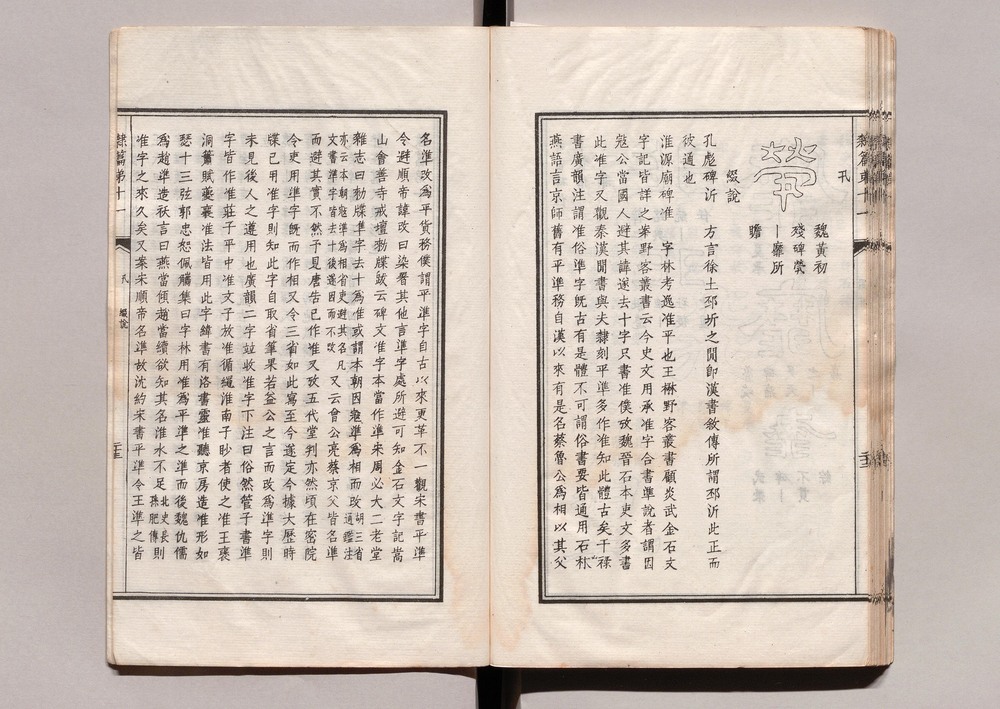 隸篇第十一
卂
煢
魏黃初
殘碑煢
丨靡所
瞻
綴說
孔彪碑沂　方言徐土邳圻之閒卽漢書敘傳所謂邳沂此正而
彼通也
淮源廟碑准　字林考逸准平也王楙野客叢書顧炎武金石文
字記皆詳之案野客叢書云今吏文用承准字合書準說者謂因
寇公當國人避其諱遂去十字只書准僕攷魏晉石本吏文多書
此准字又觀秦漢閒書與夫隸刻平準多作准知此體古矣干祿
書廣韻注謂准俗準字旣古有是體不可謂俗書要皆通用石林
燕語言京師舊有平準務自漢以來有是名蔡魯公爲相以其父
名準改爲平貨務僕謂平準字自古以來更革不一觀宋書平準
令避順帝諱改曰染署其他言準字處所避可知金石文字記嵩
山會善寺戒壇勅牒敍云碑文准字本當作準宋周必大二老堂
雜志曰勅牒準字去十爲准或謂本朝因寇準爲相而改胡三省通鑑注
亦云本朝寇準爲相省吏避其名凡文書準字皆去十後遂因而不改　又云曾公亮蔡京父皆名準
而避其實不然予見唐告已作准又攷五代堂判亦然頃在密院
令吏用準字旣而作相又令三省如此寫至今遂定今據大歷時
牒已用准字則知此字自取省筆果若益公之言而改爲準字則
未見後人之遵用也廣韻二字竝收准字下注曰俗然管子書準
字皆作准莊子平中准文子放准循繩淮南子眇者使之准王褒
洞簫賦薆襄准法皆用此字緯書有洛書靈准聽京房造准形如
瑟十三弦郭忠恕佩觿集曰字林用准爲平準之準而後魏仇儒
爲趙準造祅言曰燕當傾趙當續欲知其名淮水不足北史長孫肥傳則
准字之來久矣又案宋順帝名準故沈約宋書平準令王準之皆
隸篇第十一
卂　綴說